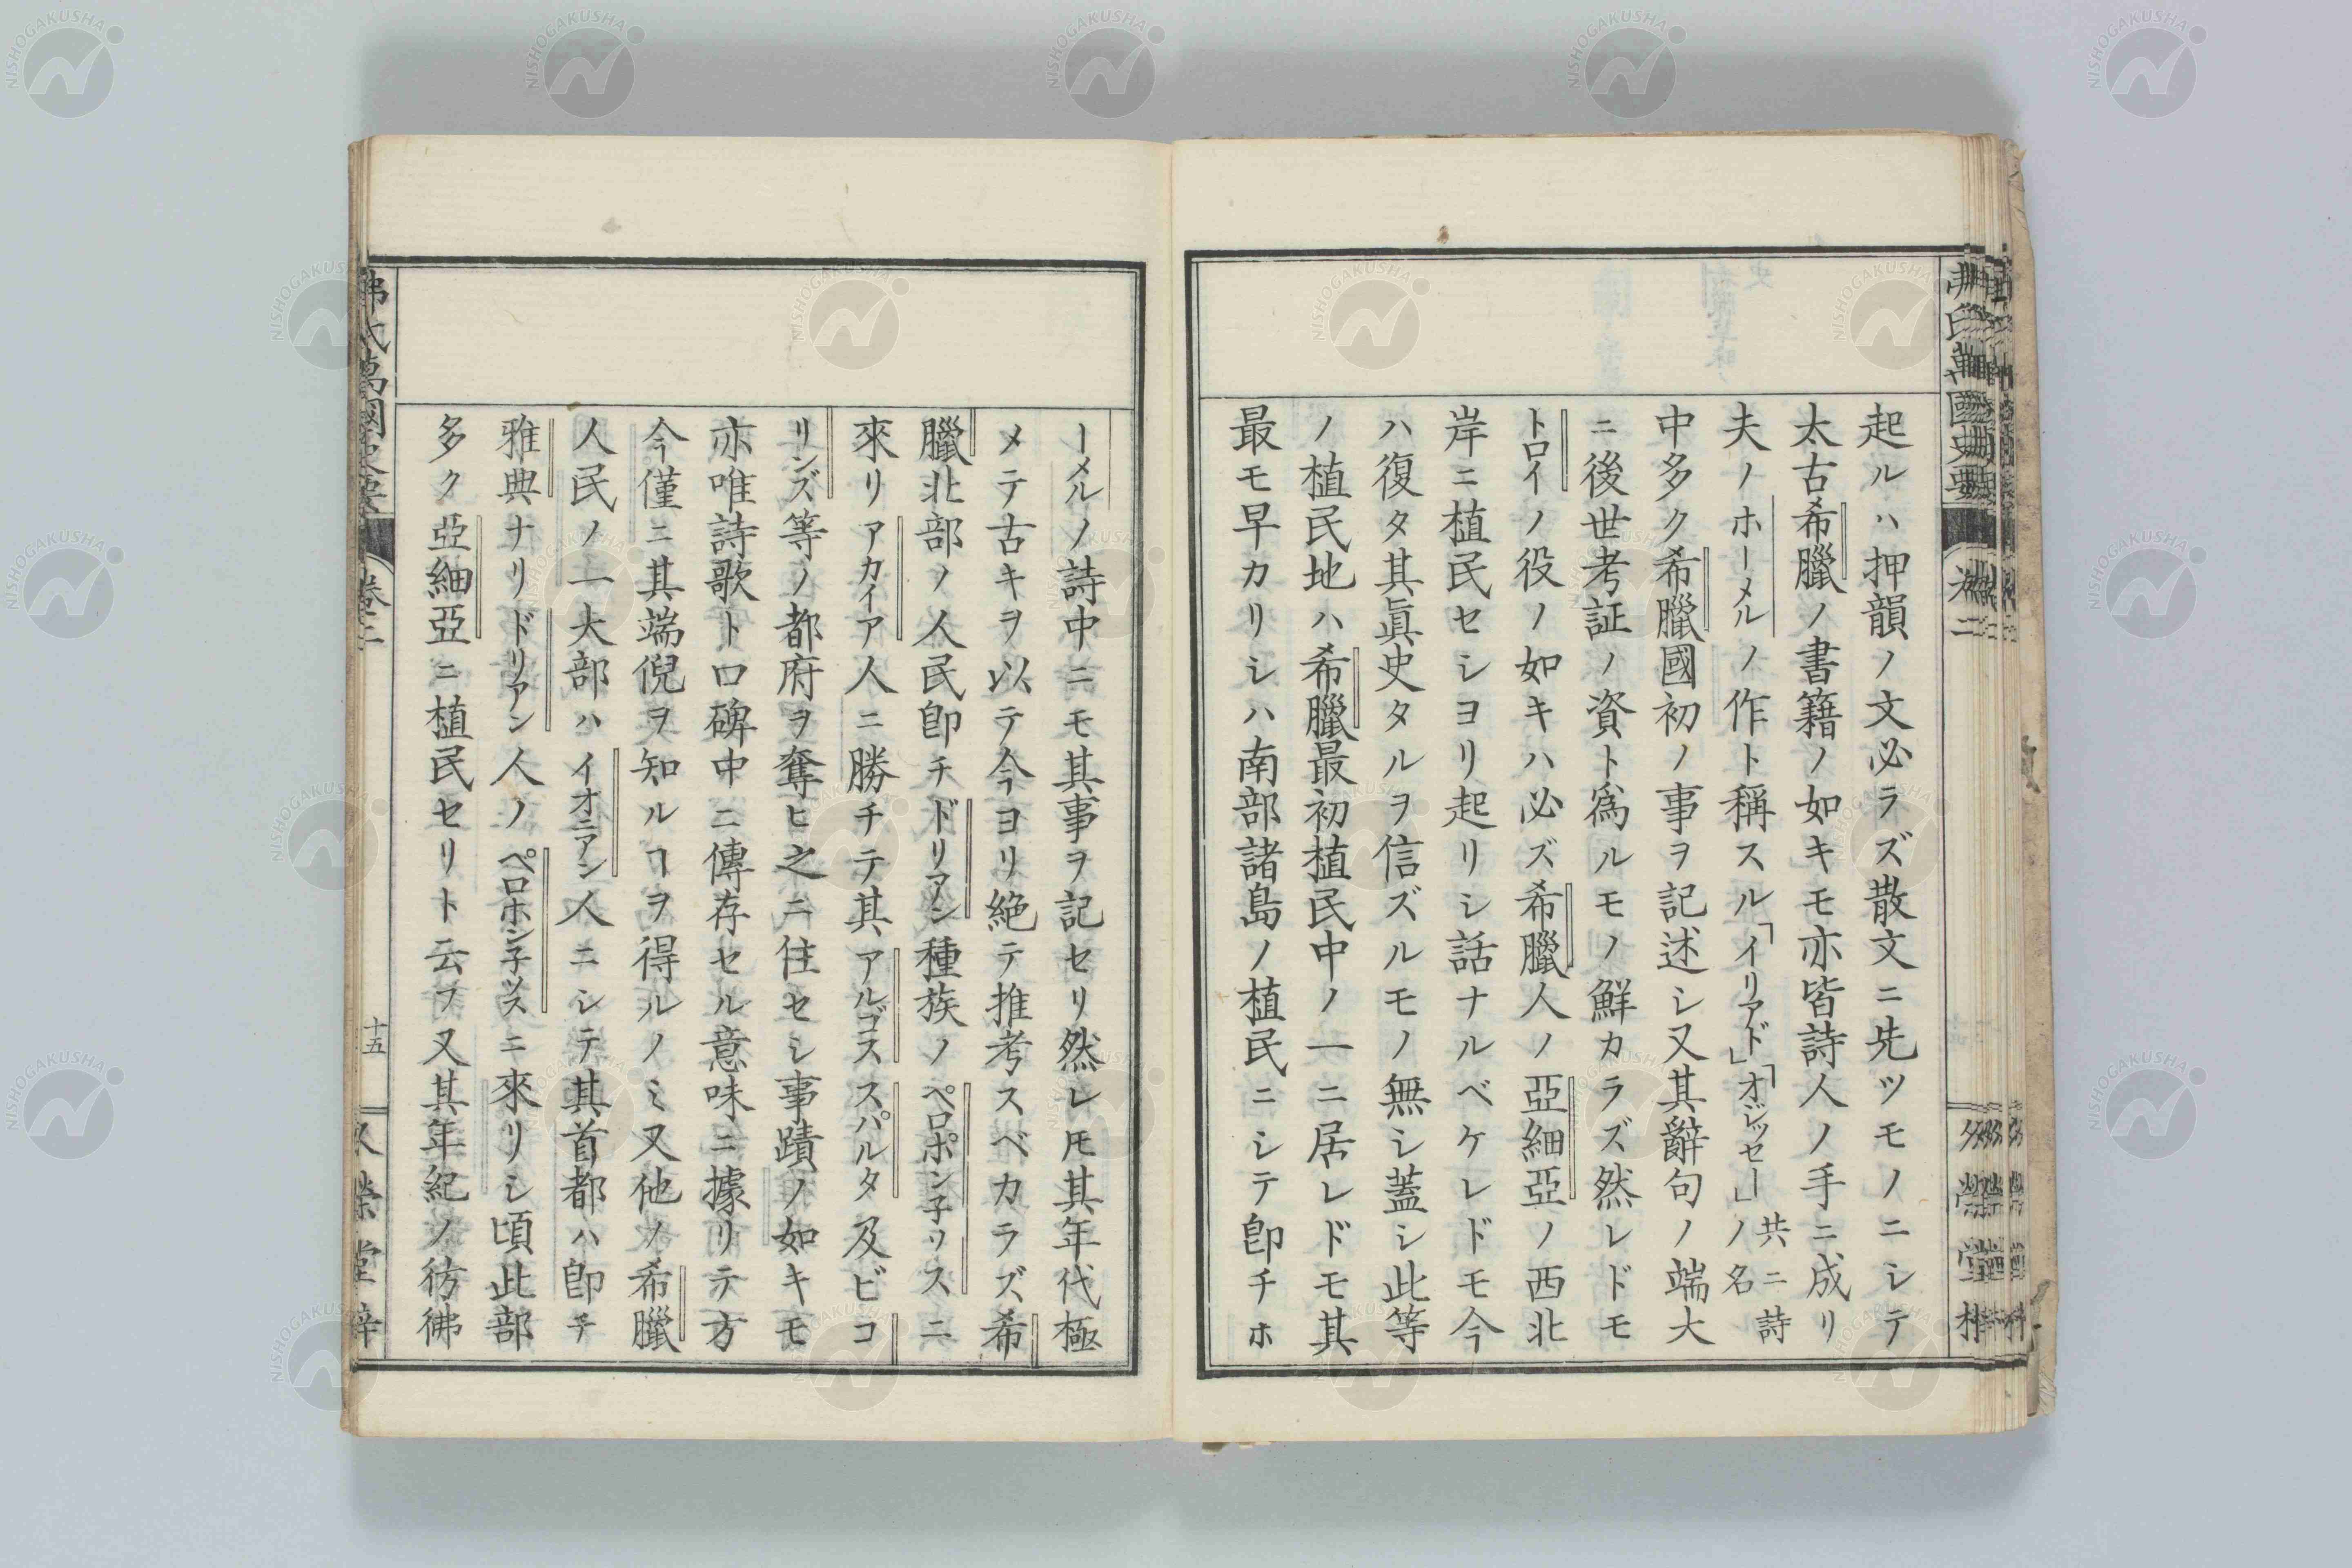 起ルハ押韻ノ文必ラズ散文ニ先ツモノニシテ
太古希臘ノ書籍ノ如キモ亦皆詩人ノ手ニ成リ
夫ノホーメルノ作ト稱スル「イリアド」「オジッセー」共ニ詩ノ名
中多ク希臘國初ノ事ヲ記述シ又其辭句ノ端大
ニ後世考証ノ資ト爲ルモノ鮮カラズ然レドモ
トロイノ役ノ如キハ必ズ希臘人ノ亞細亞ノ西北
岸ニ植民セシヨリ起リシ話ナルベケレドモ今
ハ復タ其眞史タルヲ信ズルモノ無シ蓋シ此等
ノ植民地ハ希臘最初植民中ノ一ニ居レドモ其
最モ早カリシハ南部諸島ノ植民ニシテ卽チホ
ーメルノ詩中ニモ其事ヲ記セリ然レ𪜈其年代極
メテ古キヲ以テ今ヨリ絶テ推考スベカラズ希
臘北部ノ人民卽チドリアン種族ノペロポン子ソスニ
來リアカイア人ニ勝チテ其アルゴススパルタ及ビコ
リンズ等ノ都府ヲ奪ヒ之ニ住セシ事蹟ノ如キモ
亦唯詩歌ト口碑中ニ傳存セル意味ニ據リテ方
今僅ニ其端倪ヲ知ルヿヲ得ルノミ又他ノ希臘
人民ノ一大部ハイオニアン人ニシテ其首都ハ卽チ
雅典ナリドリアン人ノペロホン子ソスニ來リシ頃此部
多ク亞細亞ニ植民セリト云フ又其年紀ノ彷彿
弗氏萬國史要
卷二
十五
又榮堂梓
NISHOGAKUSHA